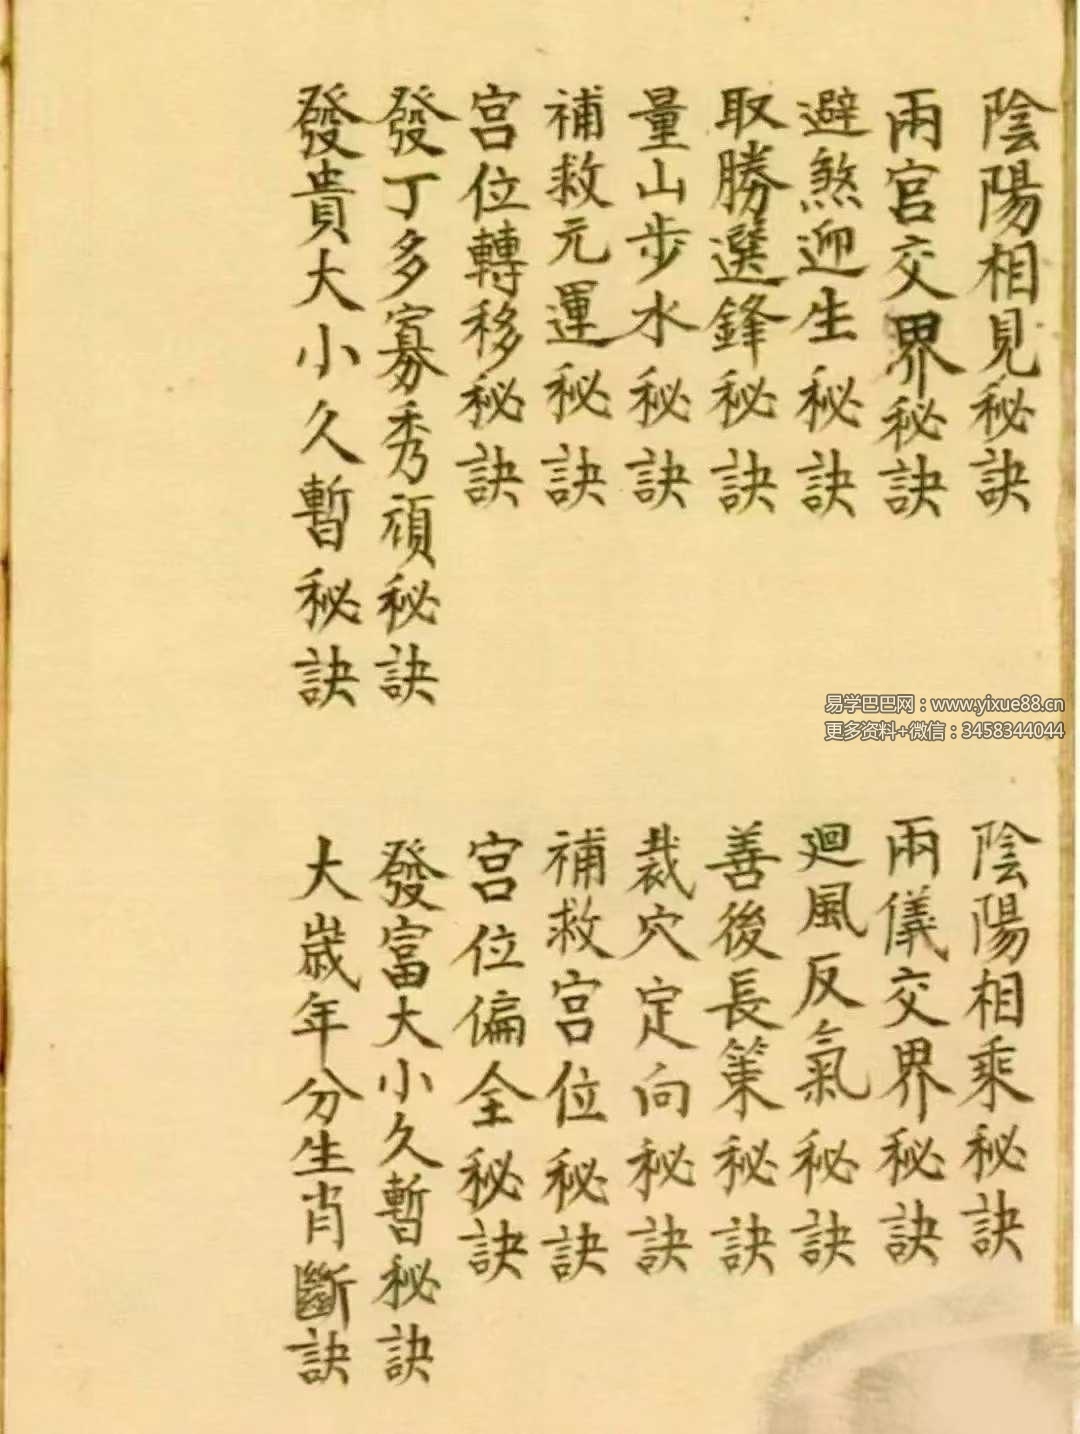 陰陽相見秘訣
兩宮交界秘訣
避煞迎生秘訣
取勝選鋒秘訣
量山步水秘訣
補救元運秘訣
宮位轉移秘訣
發丁多寡秀頑秘訣
發貴大小久暫秘訣
陰陽相乘秘訣
兩儀交界秘訣
廻風反氣秘訣
善後長策秘訣
裁穴定向秘訣
補救宮位秘訣
宮位偏全秘訣
發富大小久暫秘訣
大歲年分生肖斷訣
易学巴巴网：www.yixue88.cn
更多资料+微信：3458344044